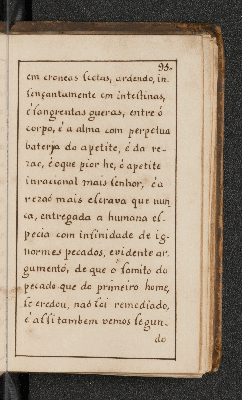 95.
em eroneas sectas, ardendo, in-
sençantemente em intestinas,
é sangrentas gueras, entre ó
corpo, é a alma com perpetua
bateria do apetite, é da re-
zaó, é o que pior he, ó apetite
inracional mais senhor, é a
rezaó mais escrava que nun-
ca, entregada a humana es-
pecia com infinidade de ig-
normes pecados, evidente ar-
gumento, de que ó fomito do
pecado que do primeiro home,
se eredou, naó foi remediado,
é assi tambem vemos segun-
do